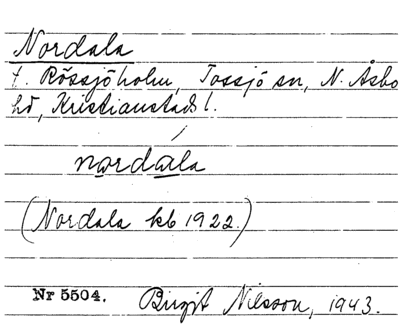 Nordala
t. Rössjöholm, Tossjö sn, N. Åsbo
hd, Kristianstads l.
nordala
(Nordala kb 1922.)
Nr 5504. Birgit Nilsson, 1943.